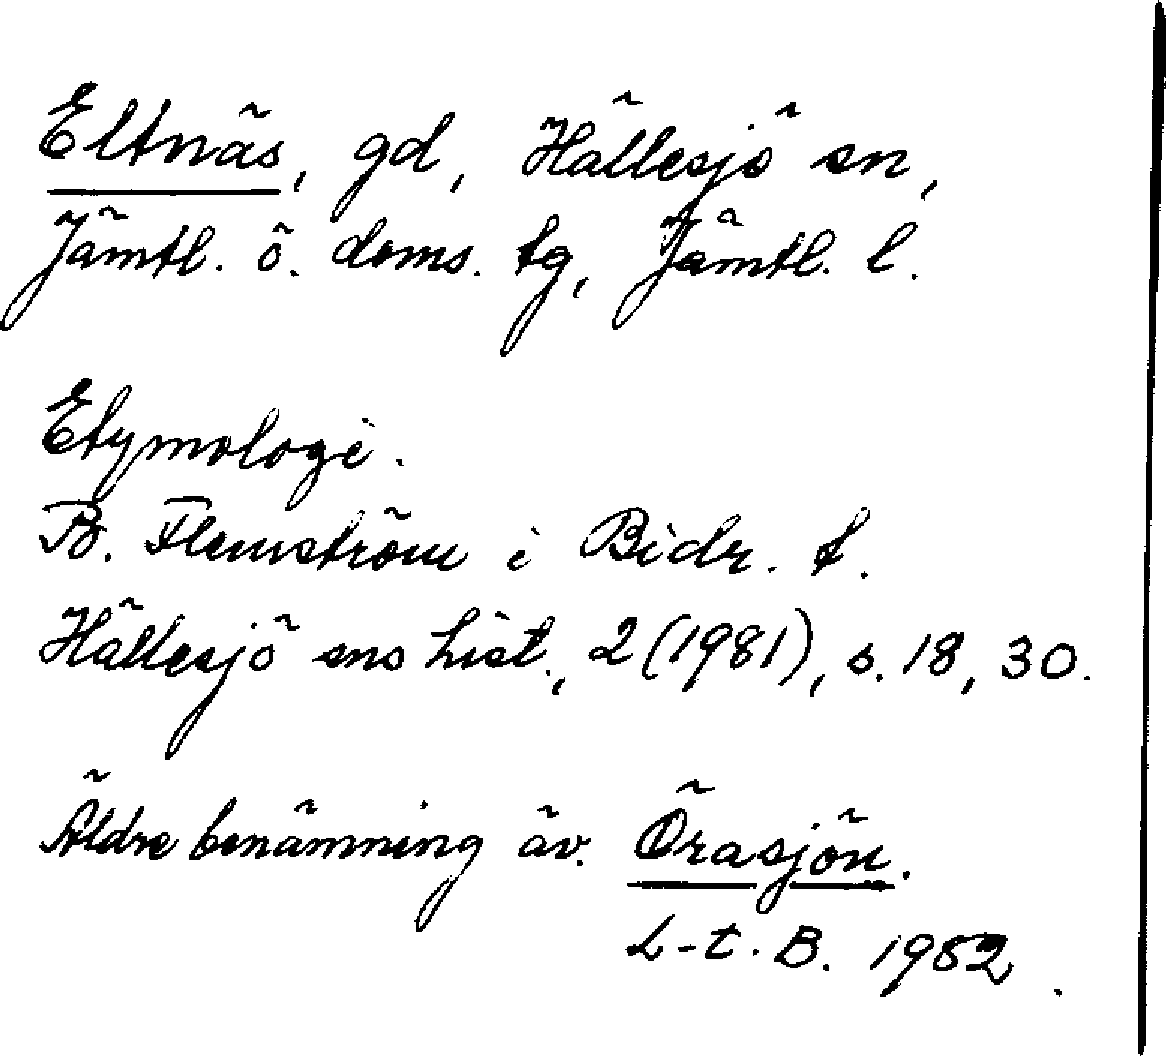 Eltnäs, gd, Hällesjö sn,
Jämtl. ö. doms. tg, Jämtl. l.
Etymologi.
B. Flemström i Bidr. t.
Hällesjö sns hist., 2 (1981), s. 18, 30.
Äldre benämning äv. Örasjön.
L-t. B. 1982.